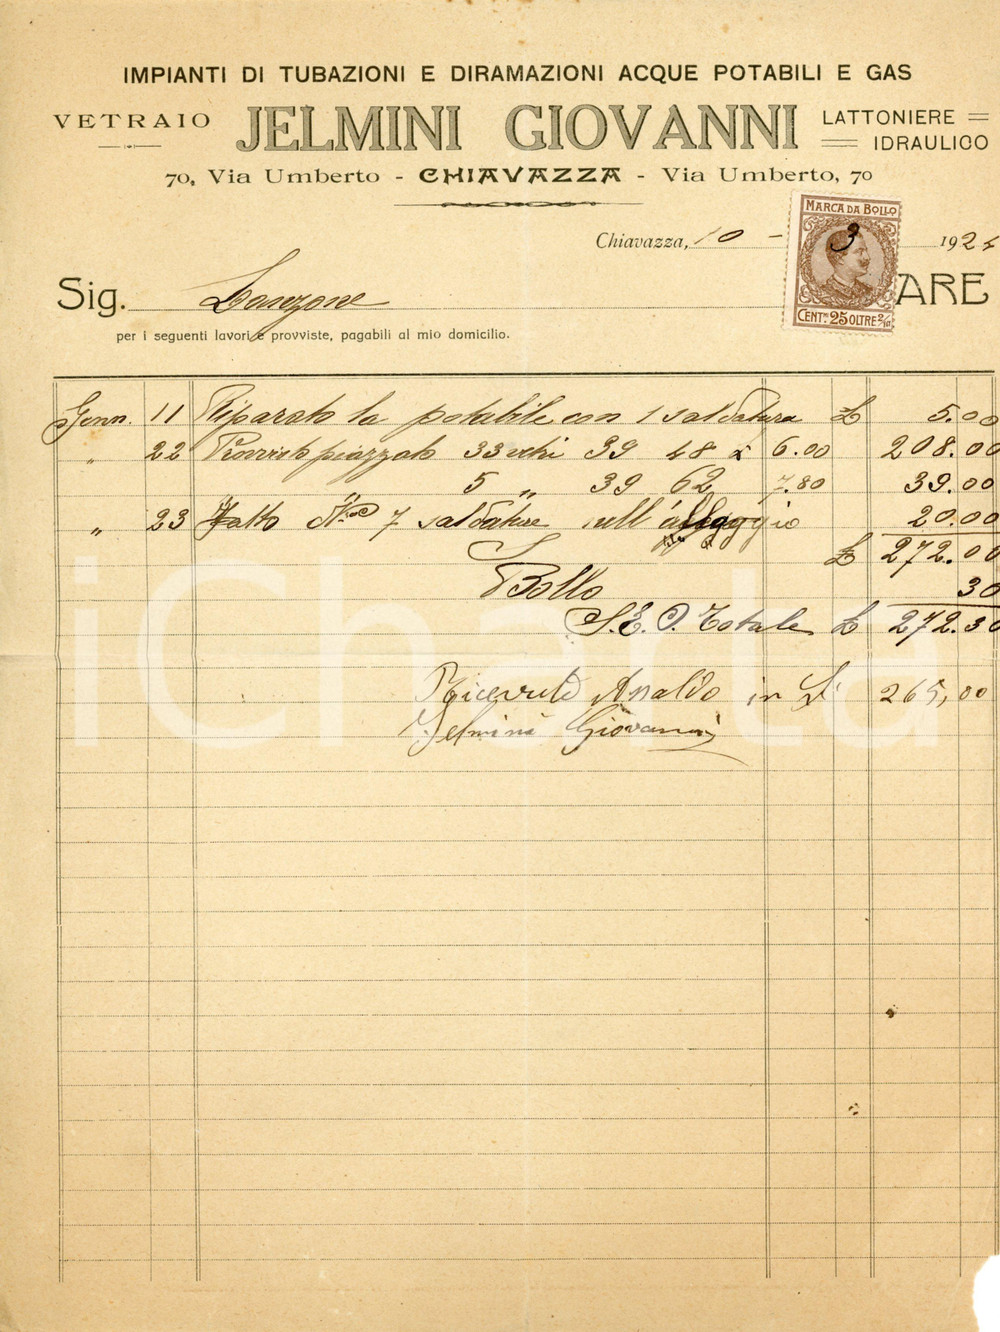 IMPIANTI DI TUBAZIONI E DIRAMAZIONI ACQUE POTABILI E GAS
VETRAIO JELMINI GIOVANNI LATTONIERE = IDRAULICO
70, Via Umberto - CHIAVAZZA - Via Umberto, 70
Chiavazza, 10 - 3 192
MARCA DA BOLLO
CENT. 25 OLTRE 2/10
Sig. Lanzone ARE
per i seguenti lavori e provviste, pagabili al mio domicilio.
Genn. 11 Riparato la potabile con 1 saldatura £ 5.00
" 22 piazzato 33 vetri 39 48 6.00 208.00
5 " 39 62 7.80 39.00
" 23 Fatto N° 7 saldature nell'alloggio 20.00
£ 272.00
Bollo 30
S.E.O. Totale £ 272.30
Ricevuto Asaldo in £ 265,00
Jelmini Giovanni
iCharta